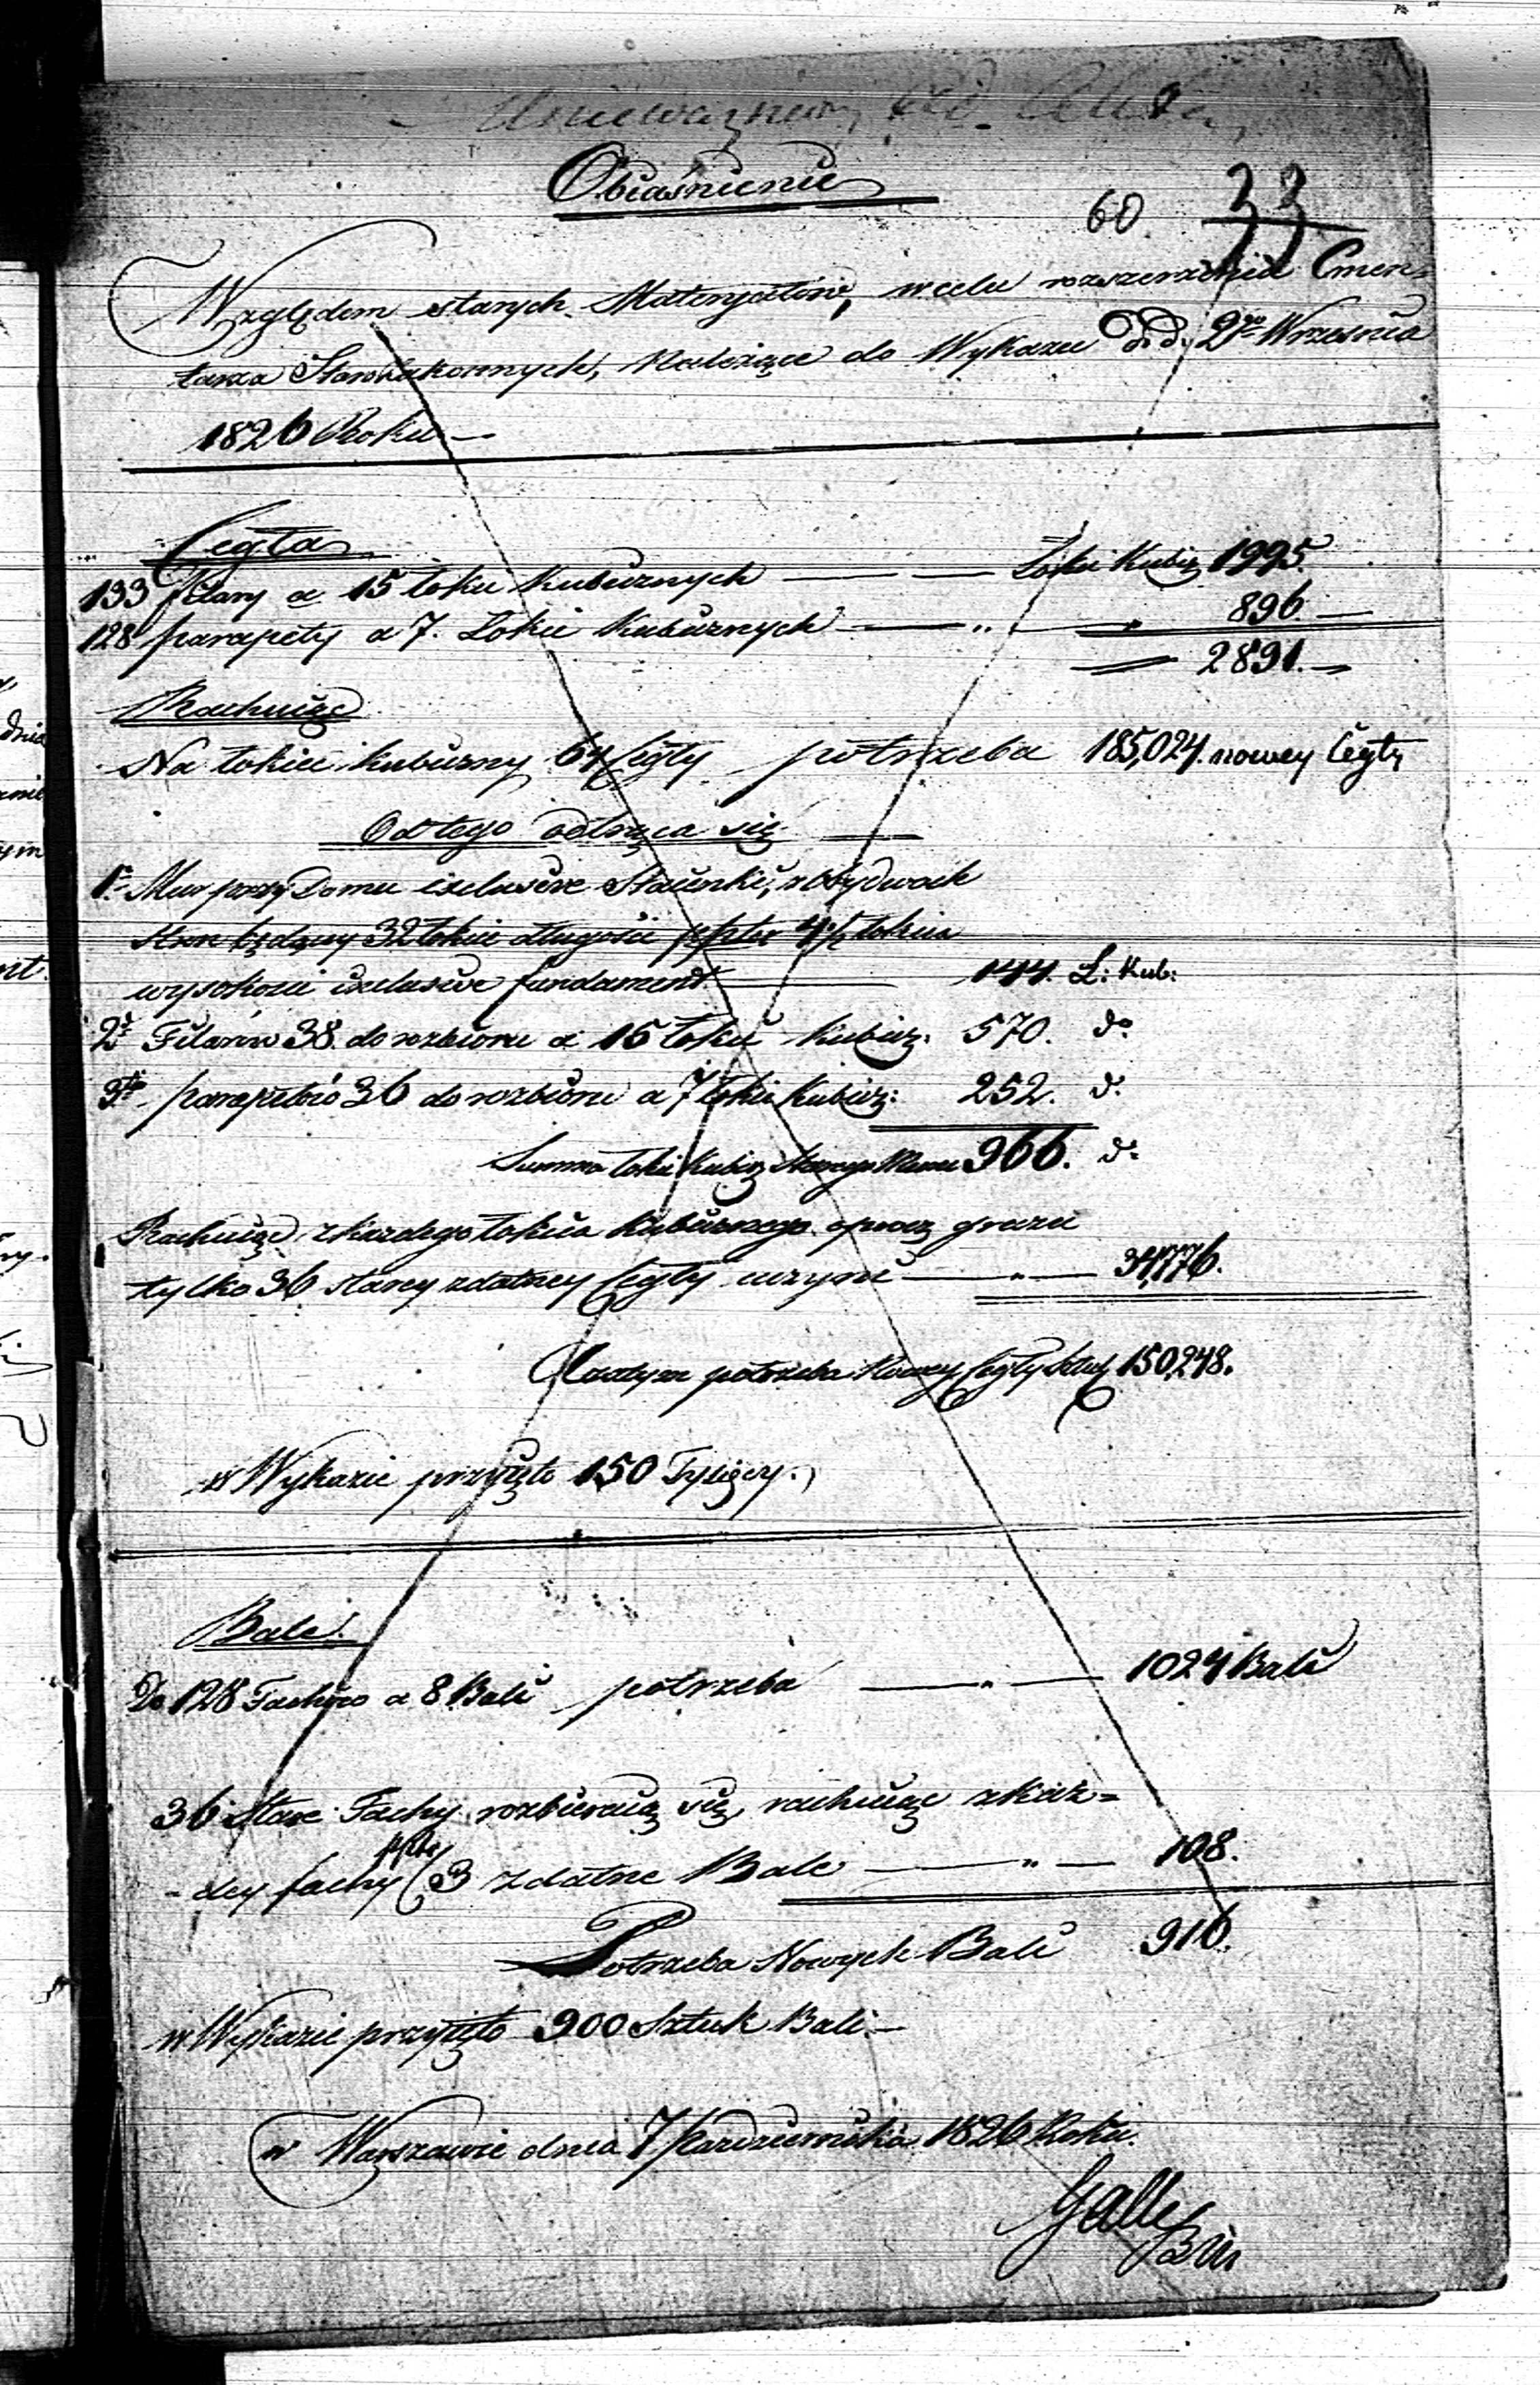 Unieważniony ad Acta
Obiaśnienie
60. 33
Względem starych Materyałów, w celu rozszerzenia Cmen=
tarza Starozakonnych, Należące do Wykazu d.d. 27o Września
1826 Roku
Cegła
133 filary a 15 łokci kubicznych — — Łokci Kubicz 1995.
128 parapety a 7. Łokci kubicznych — „ — „ 896.—
2891.—
Rachuiąc
Na łokieć kubiczny 64 Cegły potrzeba 185,024. nowey Cegły
Od tego odtrąca się
1o Mur przy Domu exclusive Staienki, z obydwoch
stron będący 32 łokcie długości 4½ łokcia
wysokości exclusive fundament — 144. Ł: Kub:
2o Filarów 38. do rozbioru a 15 łokci kubicz: 570. do
3o parapetów 36 do rozbioru a 7 łokci Kubicz: 252. do
Summa łokci Kubicz Starego Muru 966. do
Rachuiąc z każdego łokcia kubicznego oprocz gruzu
tylko 36 starey zdatney Cegły czyni — „ — 34,776.
A zatym potrzeba Nowey Cegły Sztuk 150,248.
w Wykazie przyięto 150 Tysięcy.
Bale.
Do 128 Fachów a 8 Bali potrzeba — „ — 1024 Bali
36 Stare Fachy rozbieraią się, rachuiąc z każ=
-dey fachy 3 zdatne Bale — „ — 108.
Potrzeba Nowych Bali 916.
w Wykazie przyięto 900 Sztuk Bali.—
w Warszawie dnia 7 Pazdziernika 1826 Roku.
Galle